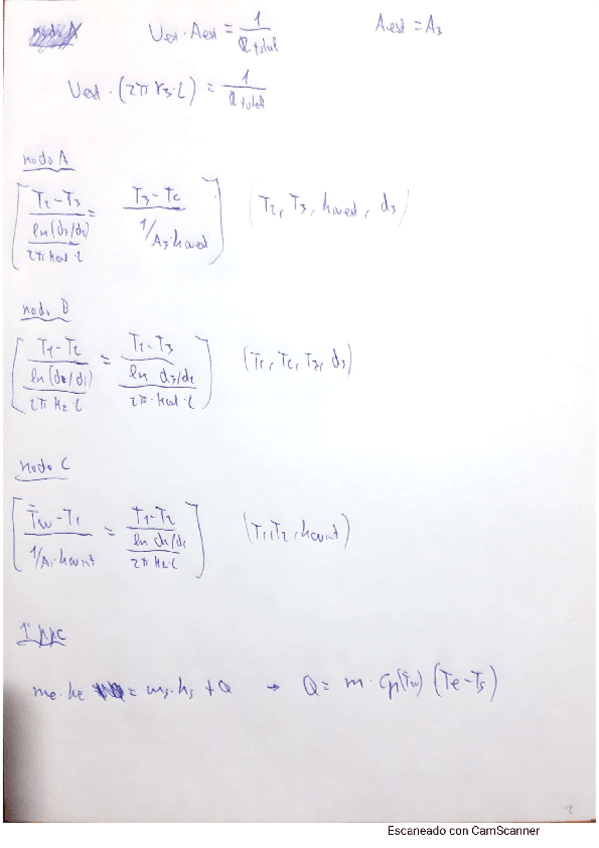 Uext · Aext = 1/Rtotal    Aext = A3
Uext · (2π r3 · L) = 1/Rtotal
nodo A
[ (T2 - T3)/(ln(d3/d2)/(2π · L)) = (T3 - Tc)/(1/A3 · ) ] (T2, T3, , d3)
nodo B
[ (T1 - T2)/(ln(d2/d1)/(2π k2 · L)) = (T2 - T3)/(ln d3/d2/(2π · L)) ] (T1, T2, T3, d3)
nodo C
[ (T̄w - T1)/(1/A1 · ) = (T1 - T2)/(ln d2/d1/(2π k2 · L)) ] (T1, T2, )
1º ppc
me · he = ms · hs + Q → Q = m · Cp(T̄w) (Te - Ts)
2
Escaneado con CamScanner